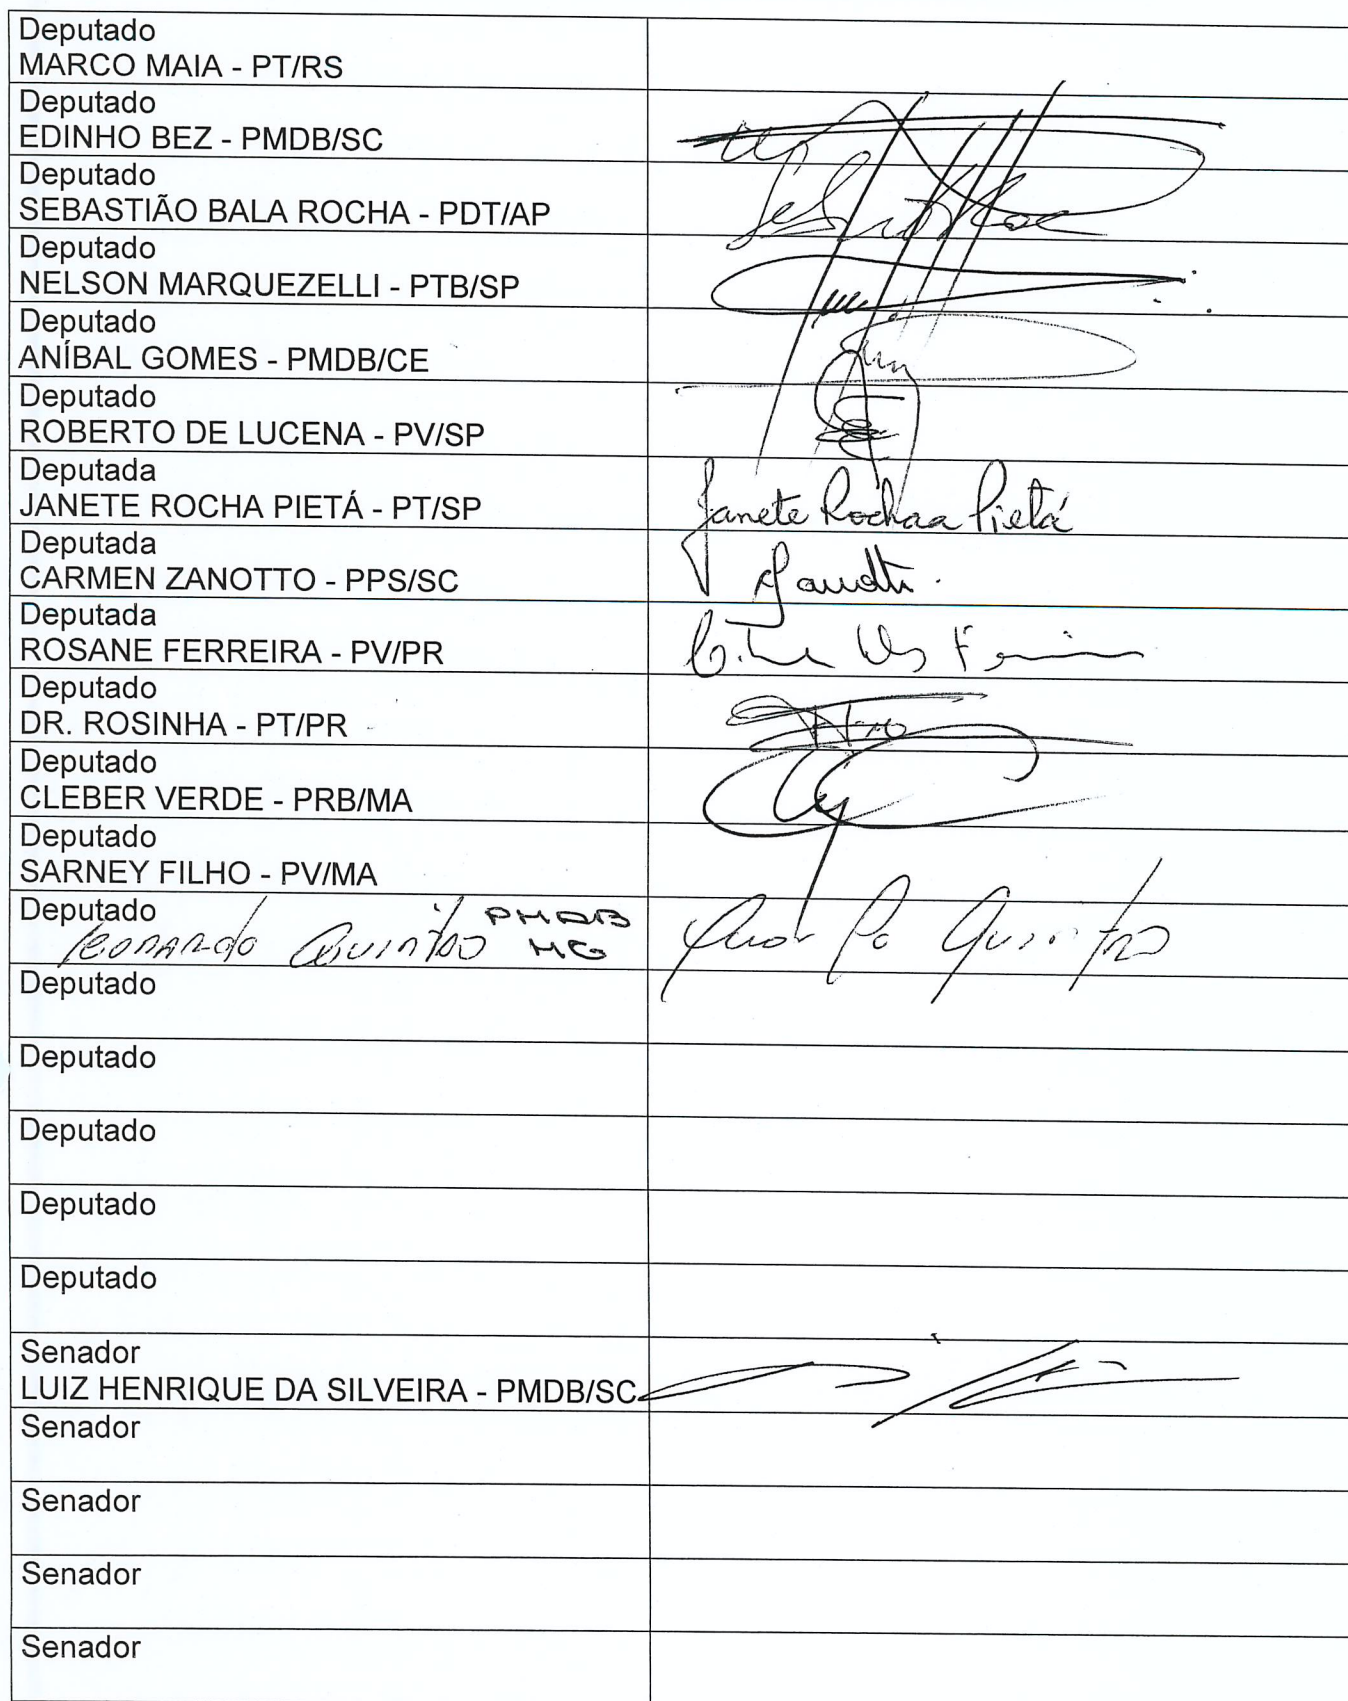 Deputado
MARCO MAIA - PT/RS
Deputado
EDINHO BEZ - PMDB/SC
Deputado
SEBASTIÃO BALA ROCHA - PDT/AP
Deputado
NELSON MARQUEZELLI - PTB/SP
Deputado
ANÍBAL GOMES - PMDB/CE
Deputado
ROBERTO DE LUCENA - PV/SP
Deputada
JANETE ROCHA PIETÁ - PT/SP
Janete Rochaa Pietá
Deputada
CARMEN ZANOTTO - PPS/SC
Deputada
ROSANE FERREIRA - PV/PR
Deputado
DR. ROSINHA - PT/PR
Deputado
CLEBER VERDE - PRB/MA
Deputado
SARNEY FILHO - PV/MA
Deputado
LEONARDO QUINTÃO PMDB
MG
Deputado
Deputado
Deputado
Deputado
Deputado
Senador
LUIZ HENRIQUE DA SILVEIRA - PMDB/SC
Senador
Senador
Senador
Senador